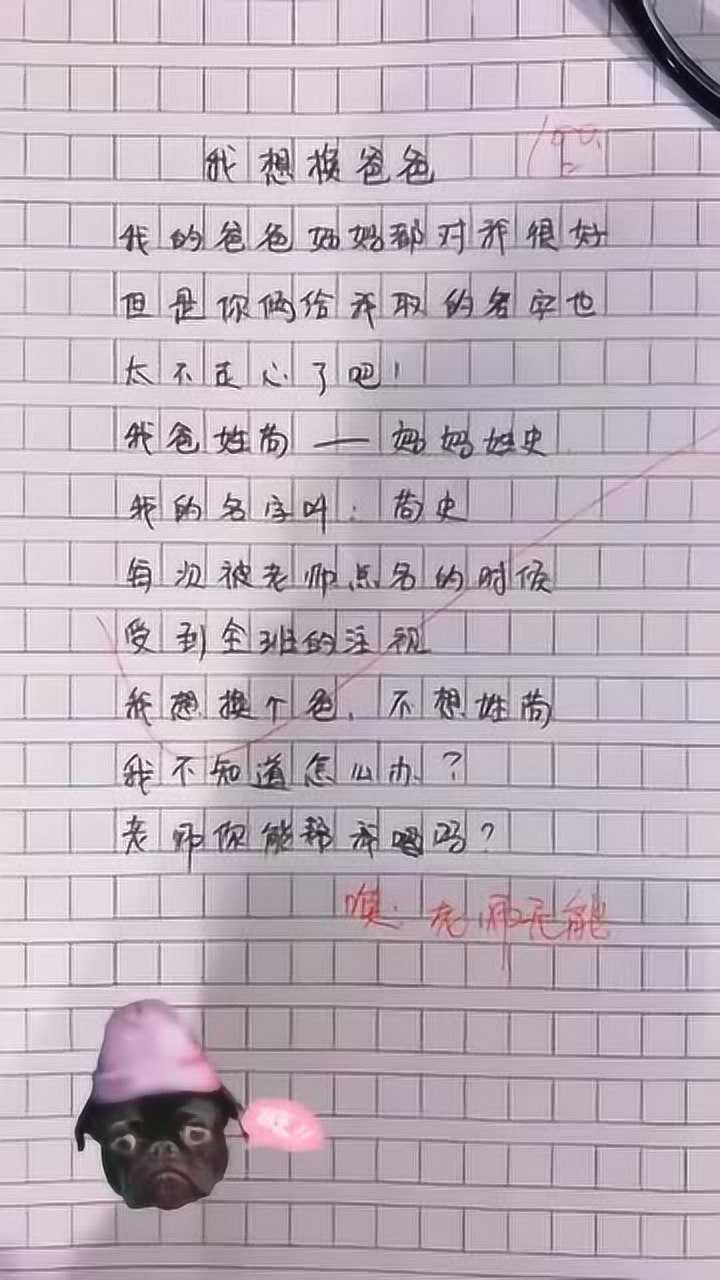 我想换爸爸
100.
我的爸爸妈妈都对我很好
但是你俩给我取的名字也
太不走心了吧!
我爸姓苟——妈妈姓史
我的名字叫:苟史
每次被老师点名的时候
受到全班的注视
我想换个爸,不想姓苟
我不知道怎么办?
老师你能帮我吗?
噢:老师无能